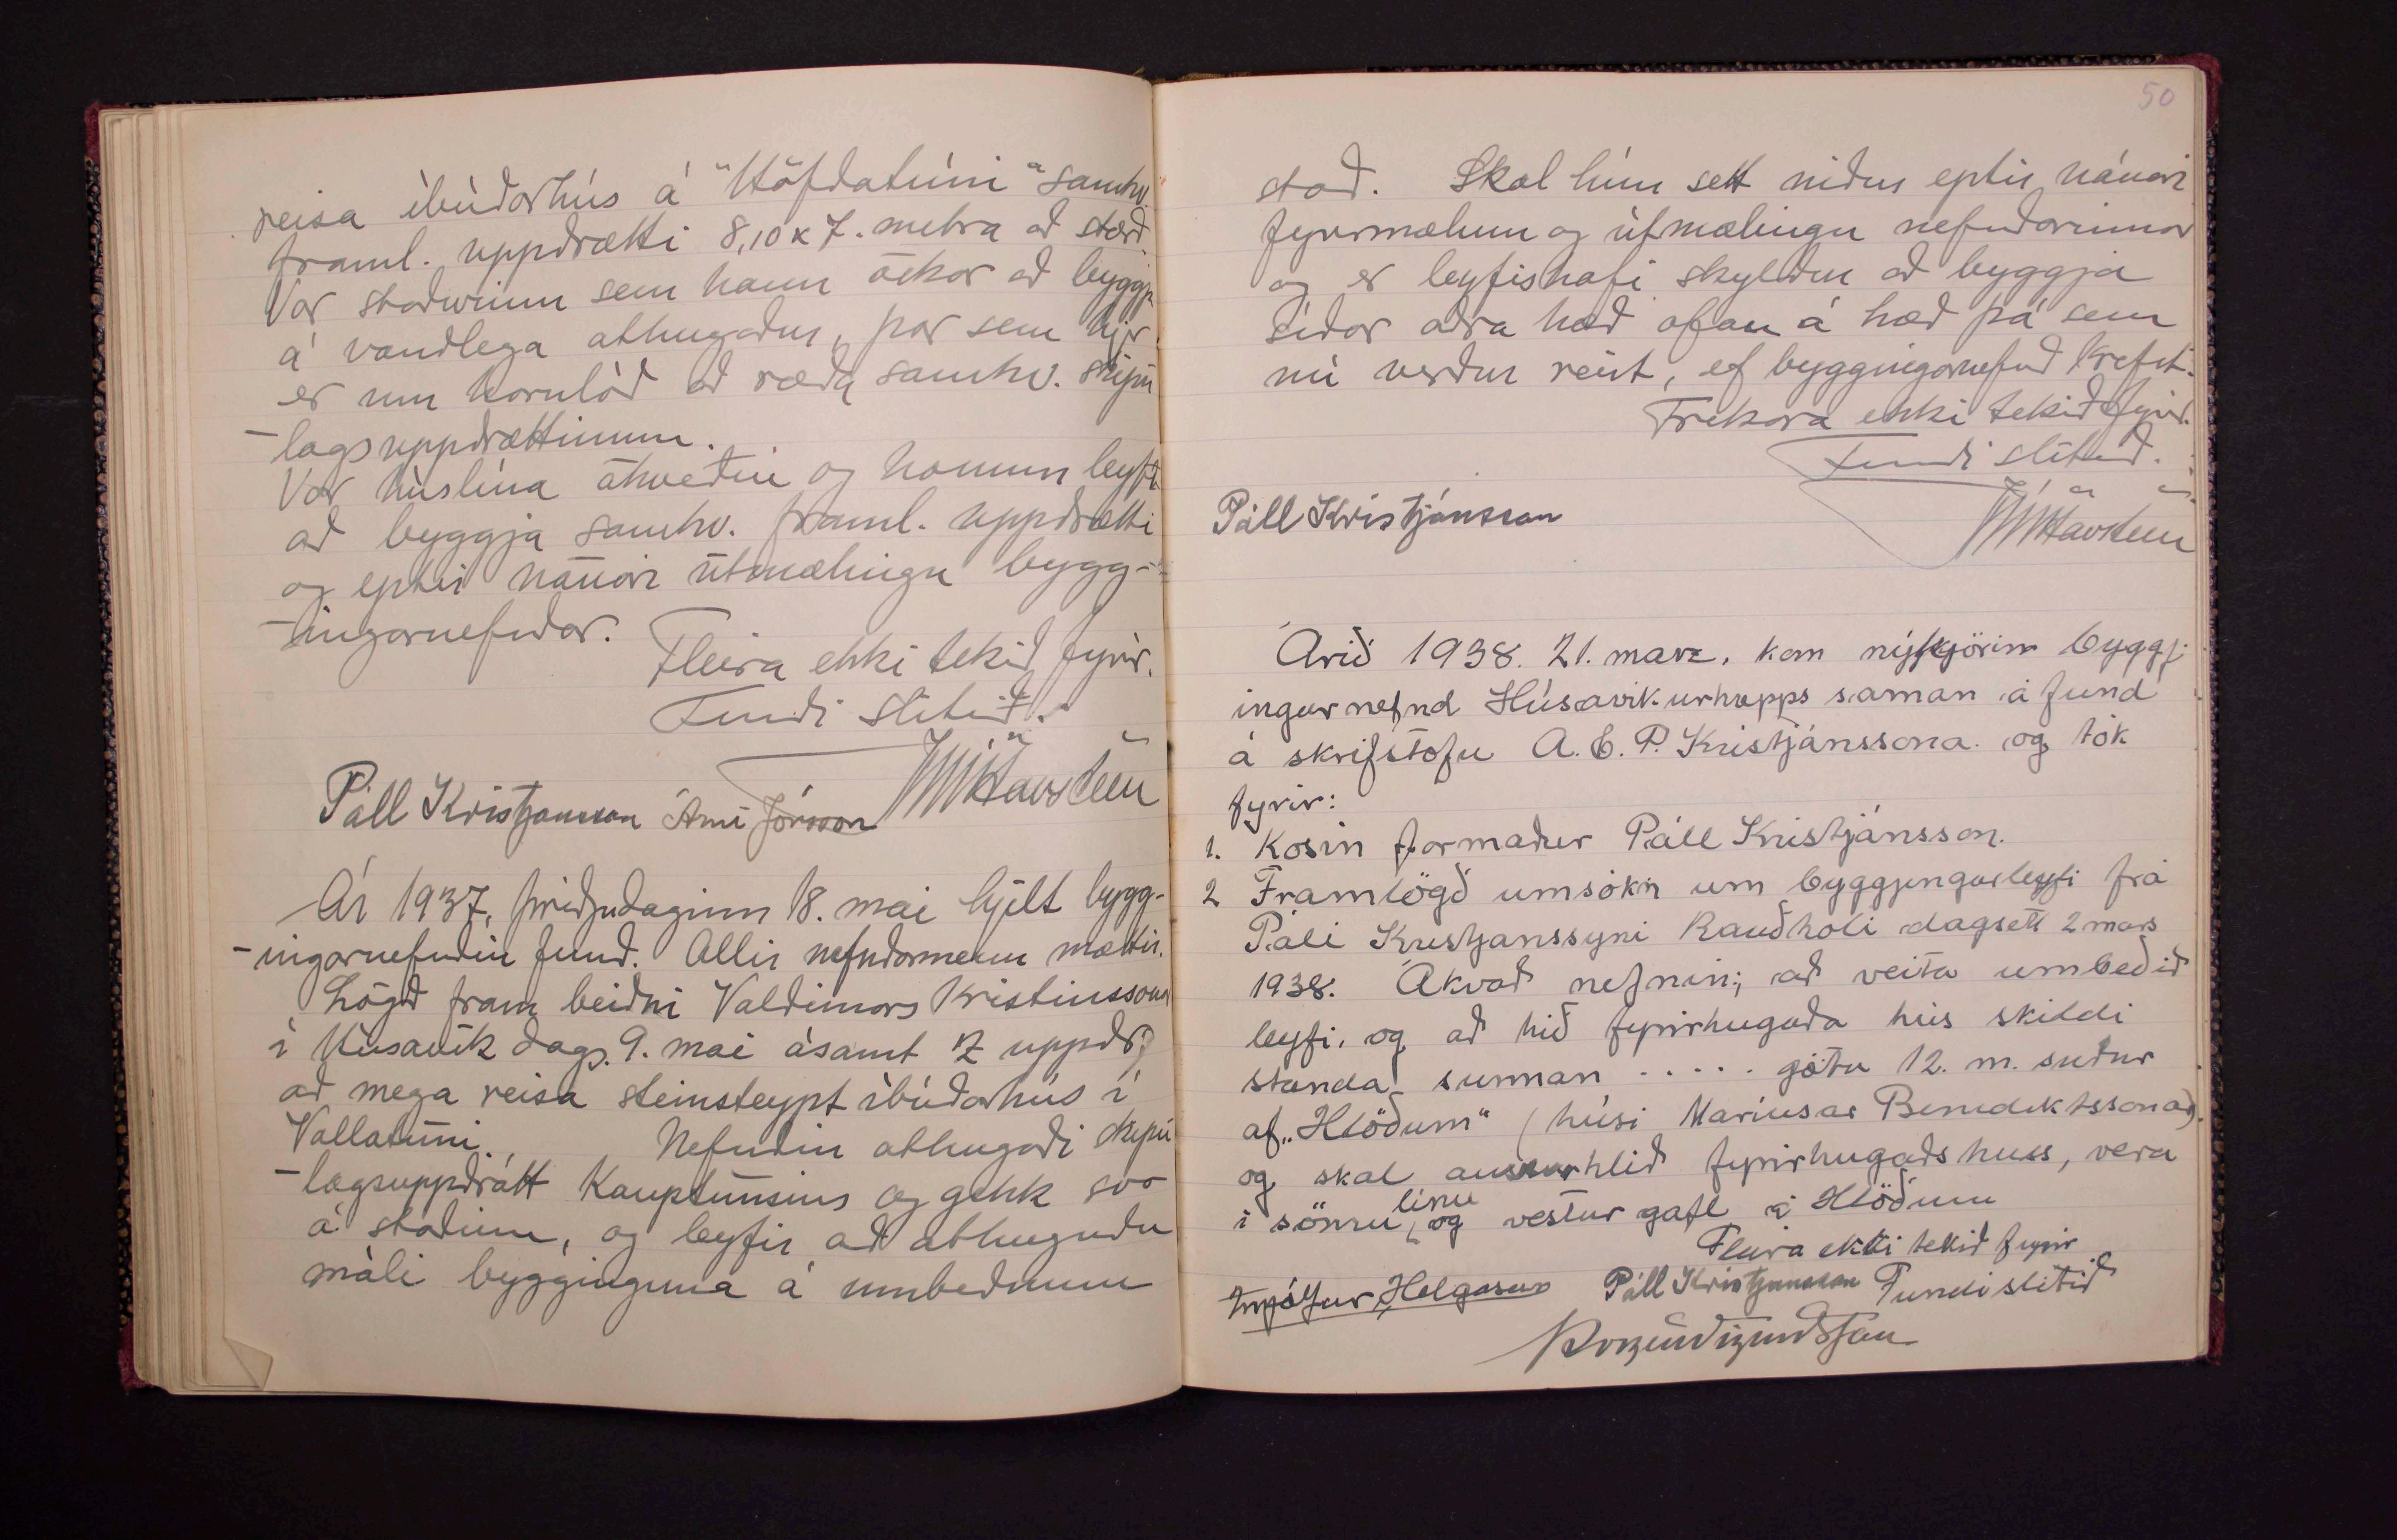 reisa íbúðarhús á "Höfðatúni" samhv.
framl. uppdrætti 8,10 x 7. metra að stærð
Var staðurinn sem hann óskar að byggja
á vandlega athugaður, þar sem hjer
er um hornlóð að ræða samhv. skipu
-lagsuppdrættinum.
Var húslína ákveðin og honum leyft
að byggja samhv. framl. uppdrætti
og eptir nánari útmælingu bygg-
-ingarnefndar.
Fleira ekki tekið fyrir.
Fundi slitið.
Havsteen
Páll Kristjánsson Árni Jónsson
Ár 1937, þriðjudaginn 18. maí hjelt bygg-
-ingarnefndin fund. Allir nefndarmenn mættir.
Lögð fram beiðni Valdimars Kristinssonar
í Húsavík dags. 9. maí ásamt uppdr,
að mega reisa steinsteypt íbúðarhús í
Vallatúni. Nefndin athugaði skipu
-lagsuppdrátt Kauptúnsins og gekk svo
á staðinn, og leyfir að athuguðu
máli bygginguna á umbeðnum
50
stað. Skal hún sett niður eptir nánari
fyrirmælum og útmælingu nefndarinnar
og er leyfishafi skyldur að byggja
síðar aðra hæð ofan á hæð þá sem
nú verður reist, ef byggingarnefnd krefst.
Frekara ekki tekið fyrir.
Fundi slitið.
Havsteen
Páll Kristjánsson
Árið 1938. 21. marz. kom nýkjörin byggj-
ingarnefnd Húsavíkurhrepps saman á fund
á skrifstofu A. & P. Kristjánssona. og tók
fyrir:
1. Kosin formaður Páll Kristjánsson.
2 Framlögð umsókn um byggjingarleyfi frá
Páli Kristjánssyni Rauðhóli dagsett 2 mars
1938. Ákvað nefnin; að veita umbeðið
leyfi, og að hið fyrirhugaða hús skildi
standa sunnan ..... götu 12. m. suður
af „Hlöðum" (húsi Maríusar Benediktssonar).
og skal austurhlið fyrirhugaðs huss, vera
í sömu línu og vestur gafl á Hlöðum
Fleira ekki tekið fyrir
Ingólfur Helgason Páll Kristjánsson Fundi slitið